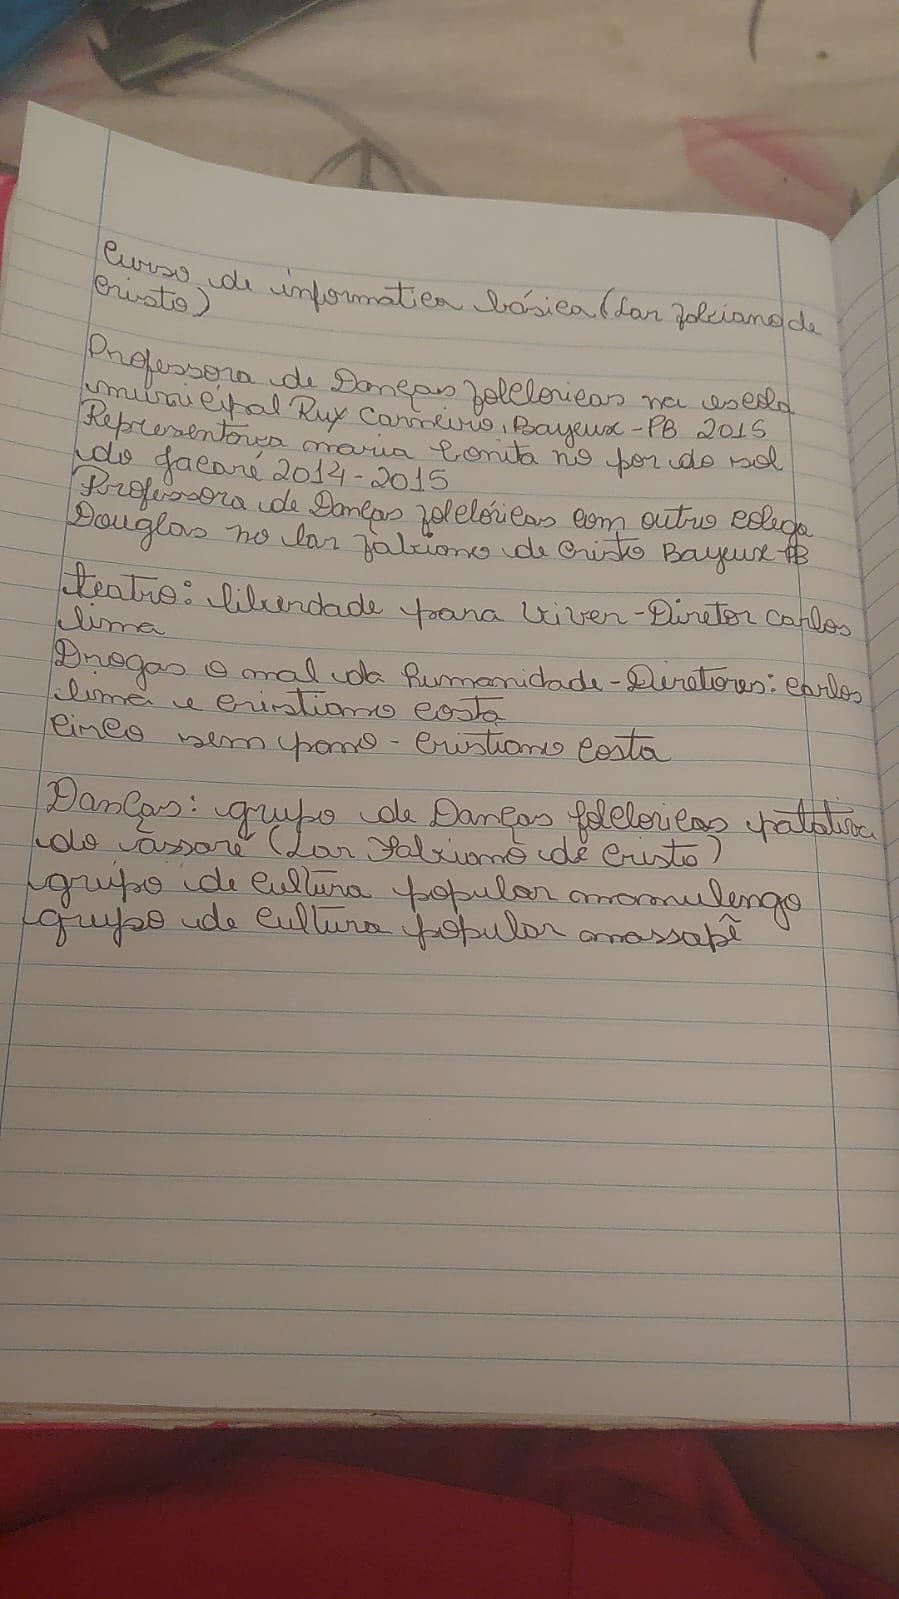 Curso de informatica básica (Lar Falciano de
Cristo)
Professora de Danças folcloricas na escola
municipal Ruy Carneiro, Bayeux-PB 2015
Representava maria bonita no por do sol
do jacaré 2014-2015
Professora de Danças folclóricas com outro colega
Douglas no lar falciano de Cristo Bayeux PB
teatro: liberdade para viver-Diretor carlos
lima
Drogas o mal da humanidade-Diretores: carlos
lima e cristiano costa
Circo sem pano-cristiano costa
Danças: grupo de Danças folcloricas patativa
do assaré (Lar Falciano de cristo)
grupo de cultura popular mamulengo
grupo de cultura popular massapê